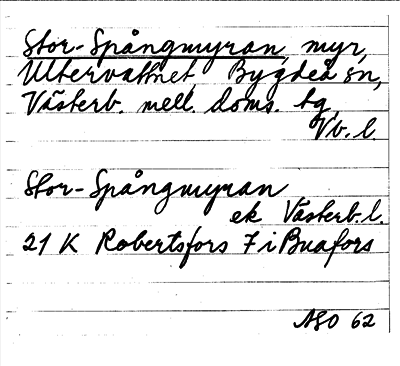 Stor-Spångmyran, myr,
Ultervattnet, Bygdeå sn,
Västerb. mell. doms. tg
Vb. l.
Stor-Spångmyran
ek Västerb. l.
21 K Robertsfors 7 i Buafors
ASO 62